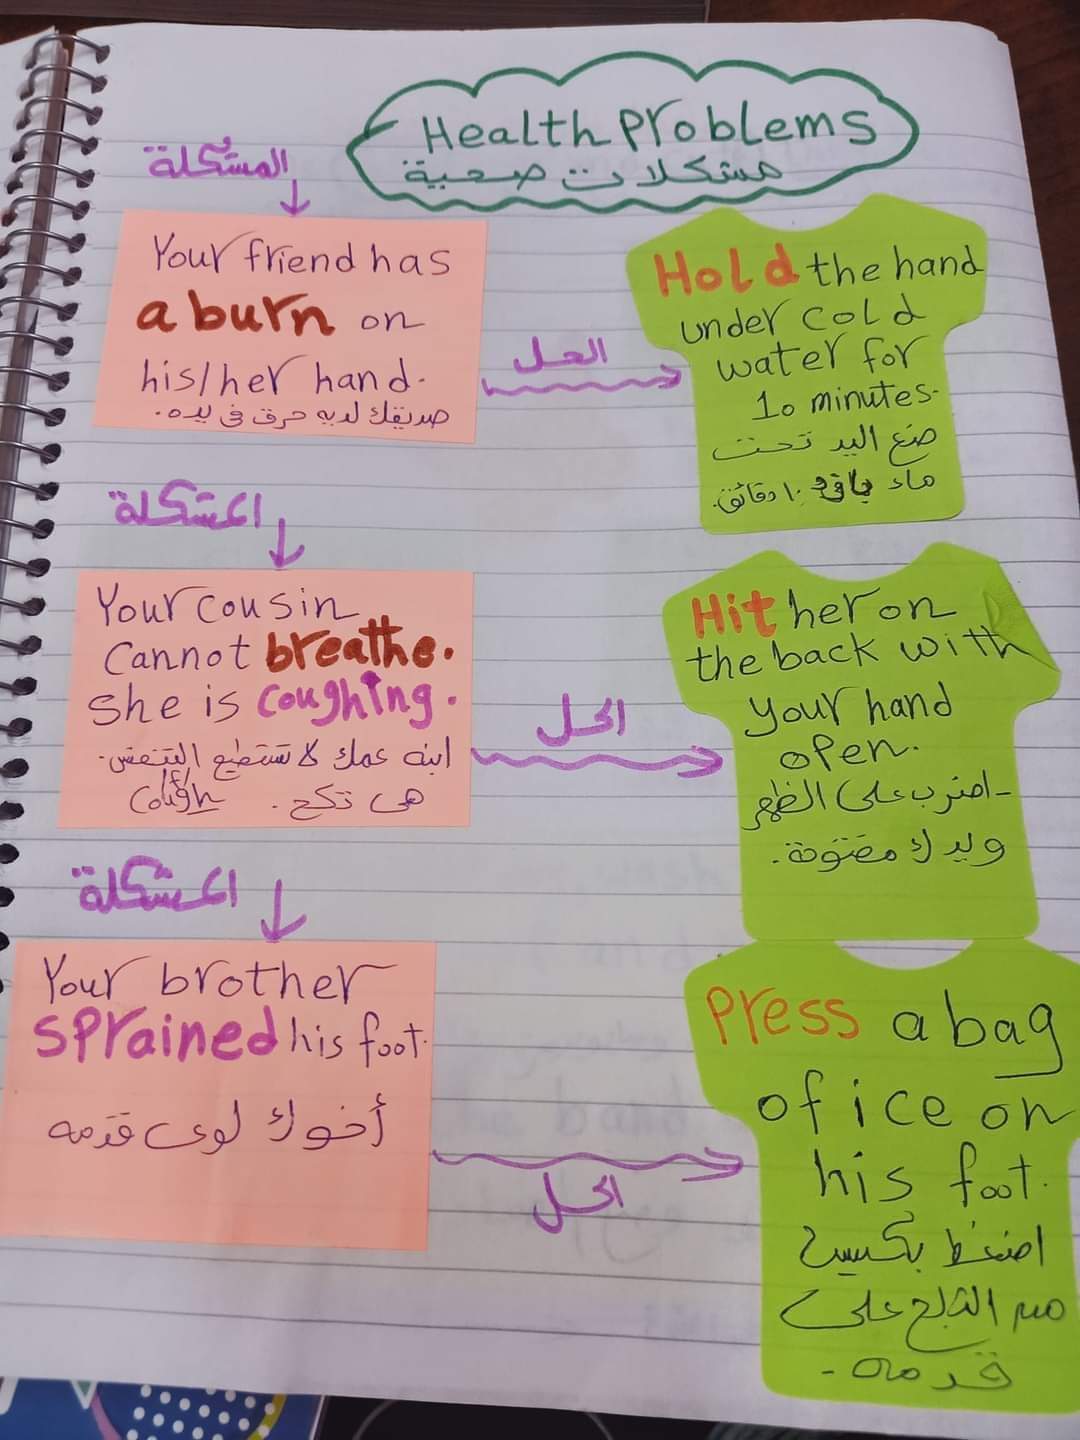 Health Problems
مشكلات صحية
المشكلة
Your friend has
a burn on
his/her hand.
صديقك لديه حرق فى يده.
الحل
Hold the hand
under cold
water for
10 minutes.
ضع اليد تحت
ماء بارد ١٠ دقائق.
المشكلة
Your cousin
cannot breathe.
she is coughing.
ابنه عمك لا تستطيع التنفس.
هى تكح. cough
الحل
Hit her on
the back with
your hand
open.
اضرب على الظهر
ويدك مفتوحة.
المشكلة
Your brother
sprained his foot.
أخوك لوى قدمه
الحل
Press a bag
of ice on
his foot.
اضغط بكيس
من الثلج على
قدمه